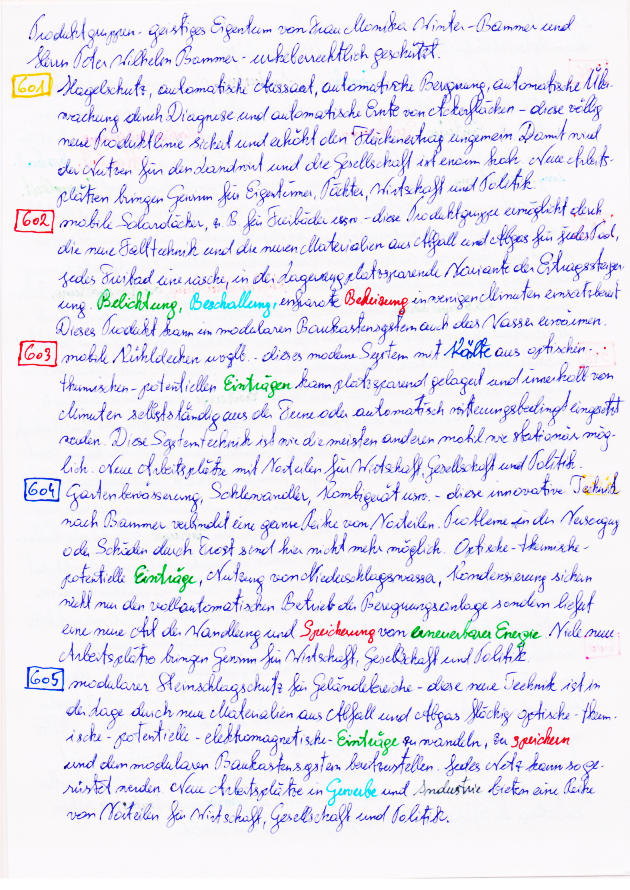 Produktgruppen - geistiges Eigentum von Frau Monika Winter-Bammer und
Herrn Peter Wilhelm Bammer - urheberrechtlich geschützt.
601 Hagelschutz, automatische Aussaat, automatische Beregnung, automatische Über-
wachung durch Diagnose und automatische Ernte von Ackerflächen - diese völlig
neue Produktlinie sichert und erhöht den Flächenertrag ungemein. Damit wird
der Nutzen für den Landwirt und die Gesellschaft ist enorm hoch. Neue Arbeits-
plätzen bringen Gewinn für Eigentümer, Pächter, Wirtschaft und Politik.
602 mobile Solardächer, z. B. für Freibäder usw. - diese Produktgruppe ermöglicht durch
die neue Falttechnik und die neuen Materialien aus Abfall und Abgas für jedes Bad,
jedes Freibad eine rasche, in der Lagerung platzsparende Variante der Ertragssteiger-
ung. Belichtung, Beschallung, Beheizung in wenigen Minuten einsatzbereit.
Dieses Produkt kann im modularen Baukastensystem auch das Wasser erwärmen.
603 mobile Kühldecken - dieses moderne System mit Kälte aus optischen-
thermischen-potentiellen Einträgen kann platzsparend gelagert und innerhalb von
Minuten selbstständig aus der Ferne oder automatisch witterungsbedingt eingesetzt
werden. Diese Systemtechnik ist wie die meisten anderen mobil wie stationär mög-
lich. Neue Arbeitsplätze mit Vorteilen für Wirtschaft, Gesellschaft und Politik.
604 Gartenbewässerung, Solewandler, Kombigerät usw. - diese innovative Technik
nach Bammer verbindet eine ganze Reihe von Vorteilen. Probleme in der Versorgung
oder Schäden durch Frost sind hier nicht mehr möglich. Optische-thermische-
potentielle Einträge, Nutzung von Niederschlagswasser, Kondensierung sichern
nicht nur den vollautomatischen Betrieb der Beregnungsanlage sondern liefert
eine neue Art der Wandlung und Speicherung von erneuerbarer Energie. Viele neue
Arbeitsplätze bringen Gewinn für Wirtschaft, Gesellschaft und Politik.
605 modularer Steinschlagschutz für Geländebereiche - diese neue Technik ist in
der Lage durch neue Materialien aus Abfall und Abgas flächig optische-therm-
ische-potentielle-elektromagnetische-Einträge zu wandeln, zu speichern
und dem modularen Baukastensystem bereitzustellen. Jedes Netz kann so ge-
rüstet werden. Neue Arbeitsplätze in Gewerbe und Industrie bieten eine Reihe
von Vorteilen für Wirtschaft, Gesellschaft und Politik.